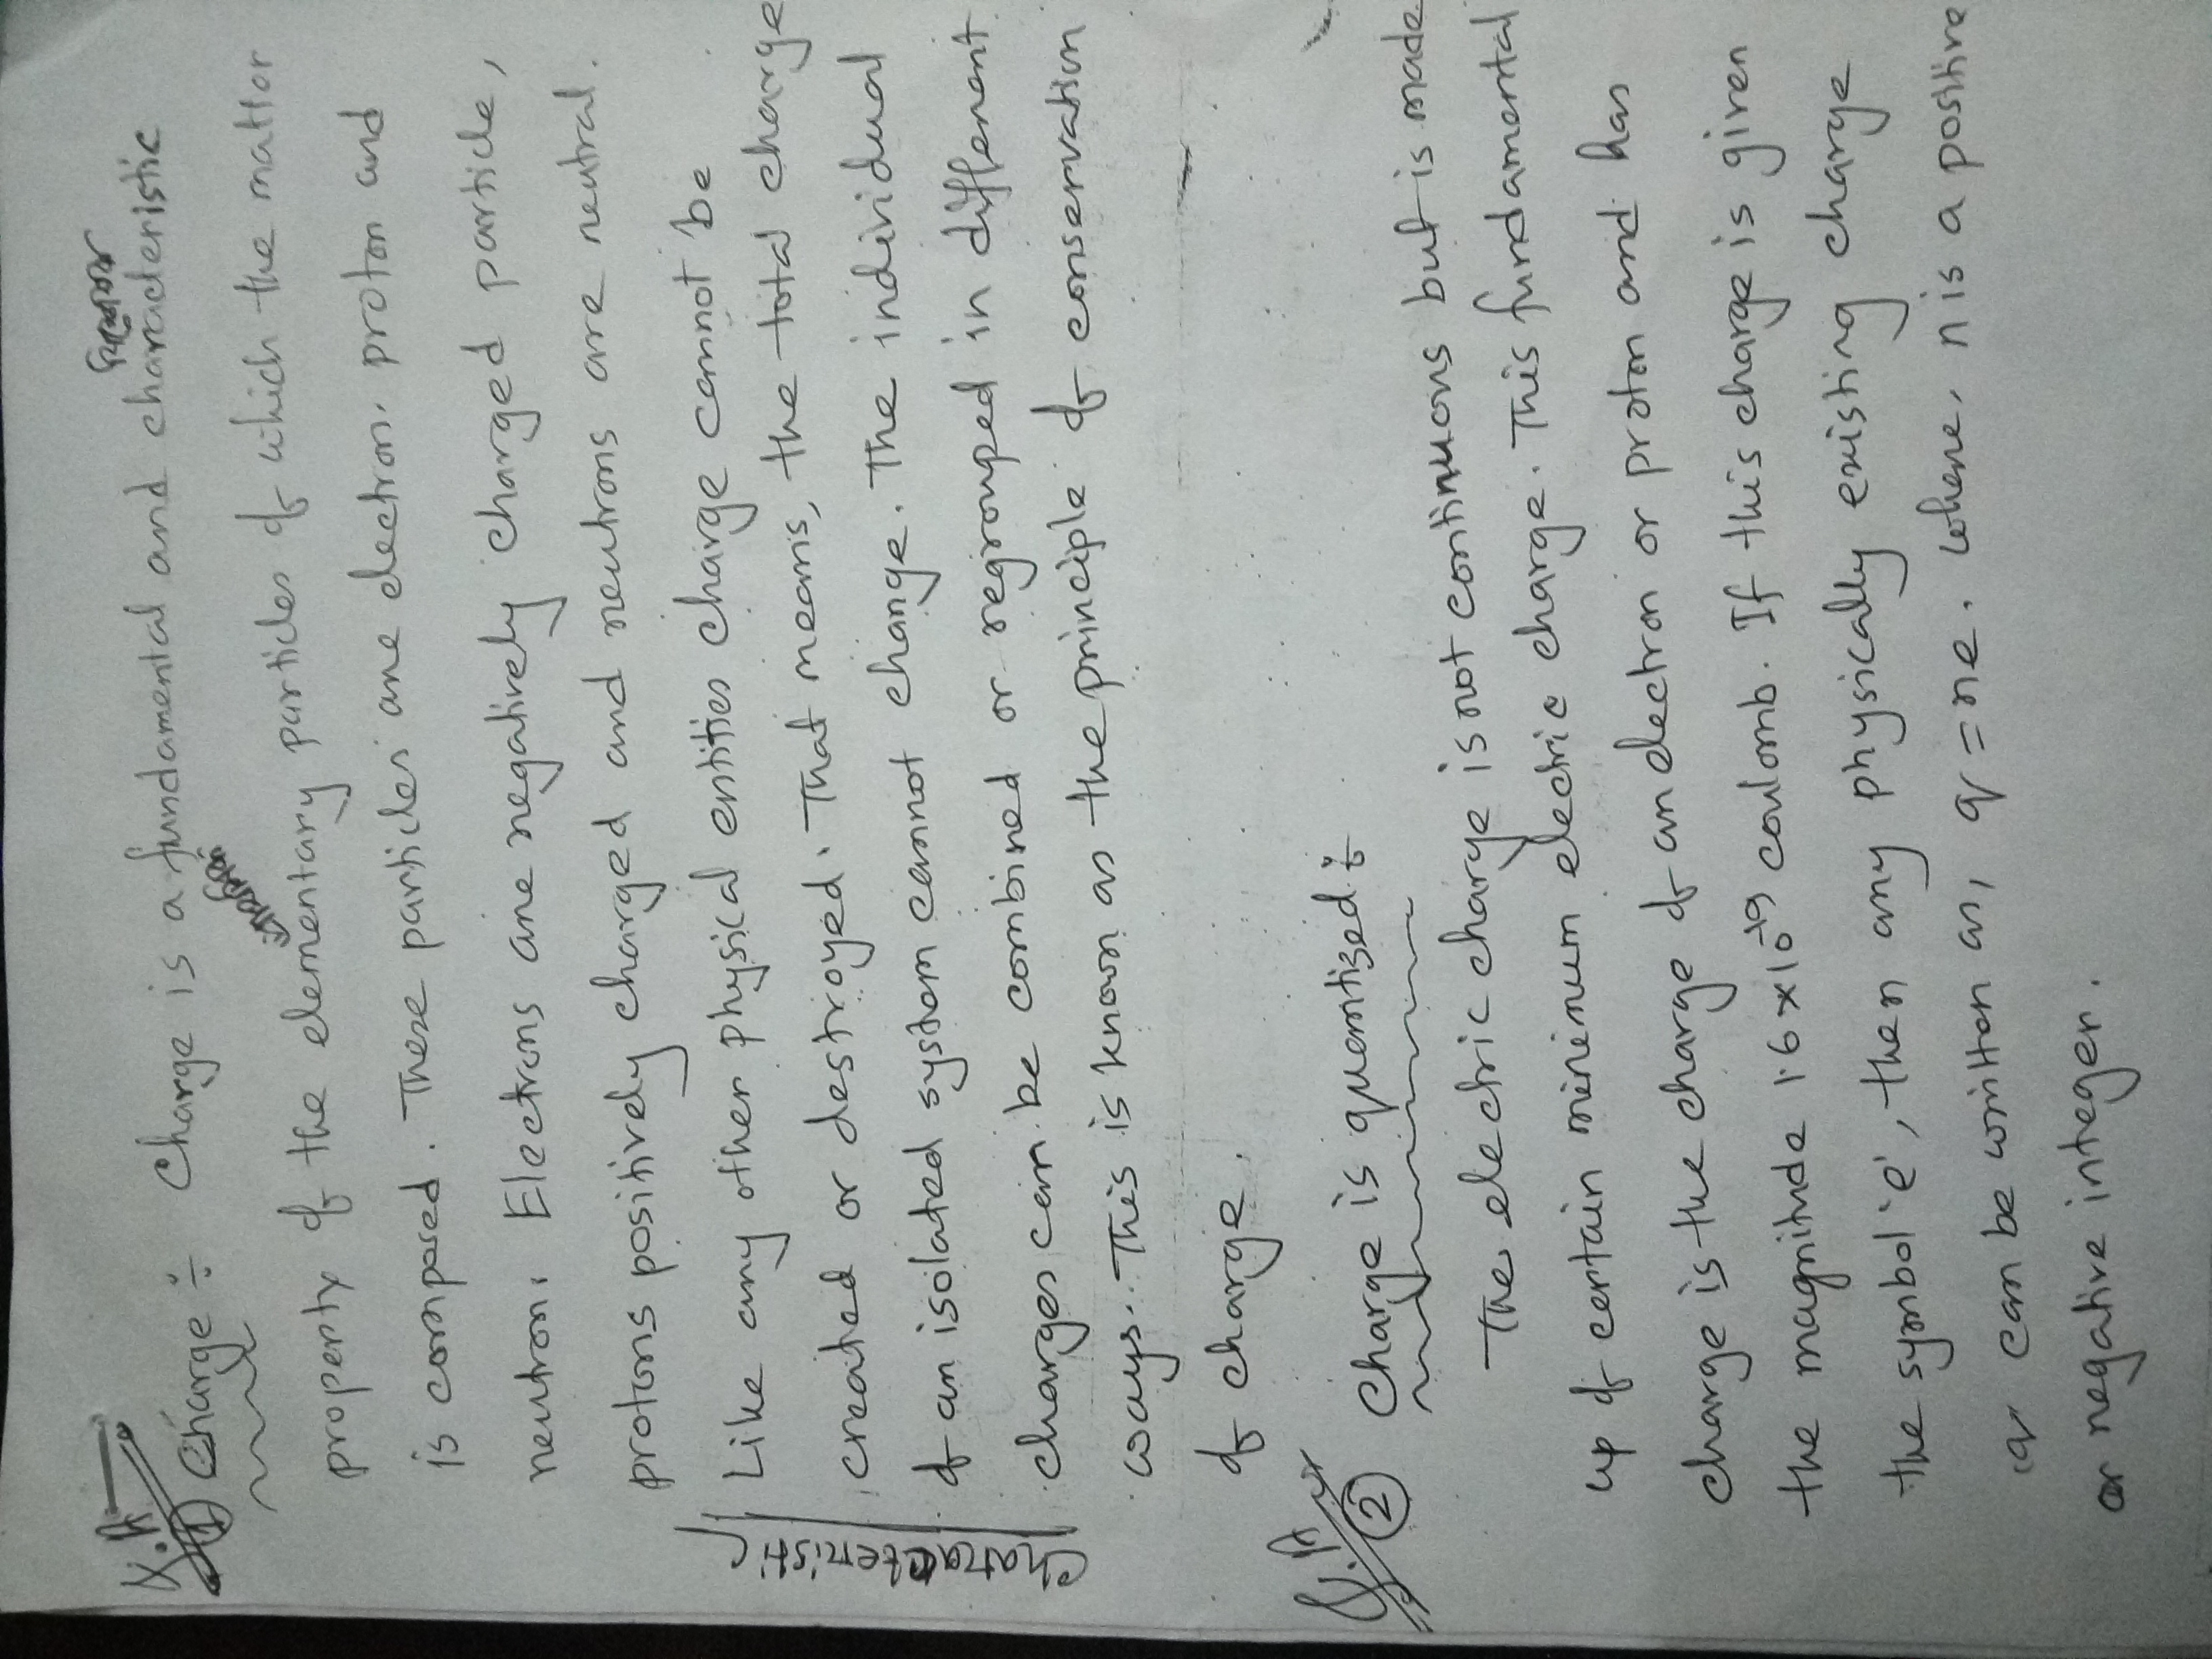 Q.A
① Charge ÷ Charge is a fundamental and characteristic
property of the elementary particles of which the mattor
is composed. These particles are electron. proton and
neutron. Electrons are negatively charged particle,
protons positively charged and neutrons are neutral.
Charactteristic
Like any other physical entities charge cannot be
created or destroyed. That means, the total charge
of an isolated system cannot change. The individual
charges can be combined or regrouped in different
ways. This is known as the principle of conservation
of charge.
Q.A
② Charge is quantized ÷
The electric charge is not continuous but is made
up of certain minimum electric charge. This fundamental
charge is the charge of an electron or proton and has
the magnitude 1.6×10⁻¹⁹ coulomb. If this charge is given
the symbol 'e', then any physically existing charge
q can be written as, q = ne. where, n is a positive
or negative integer.